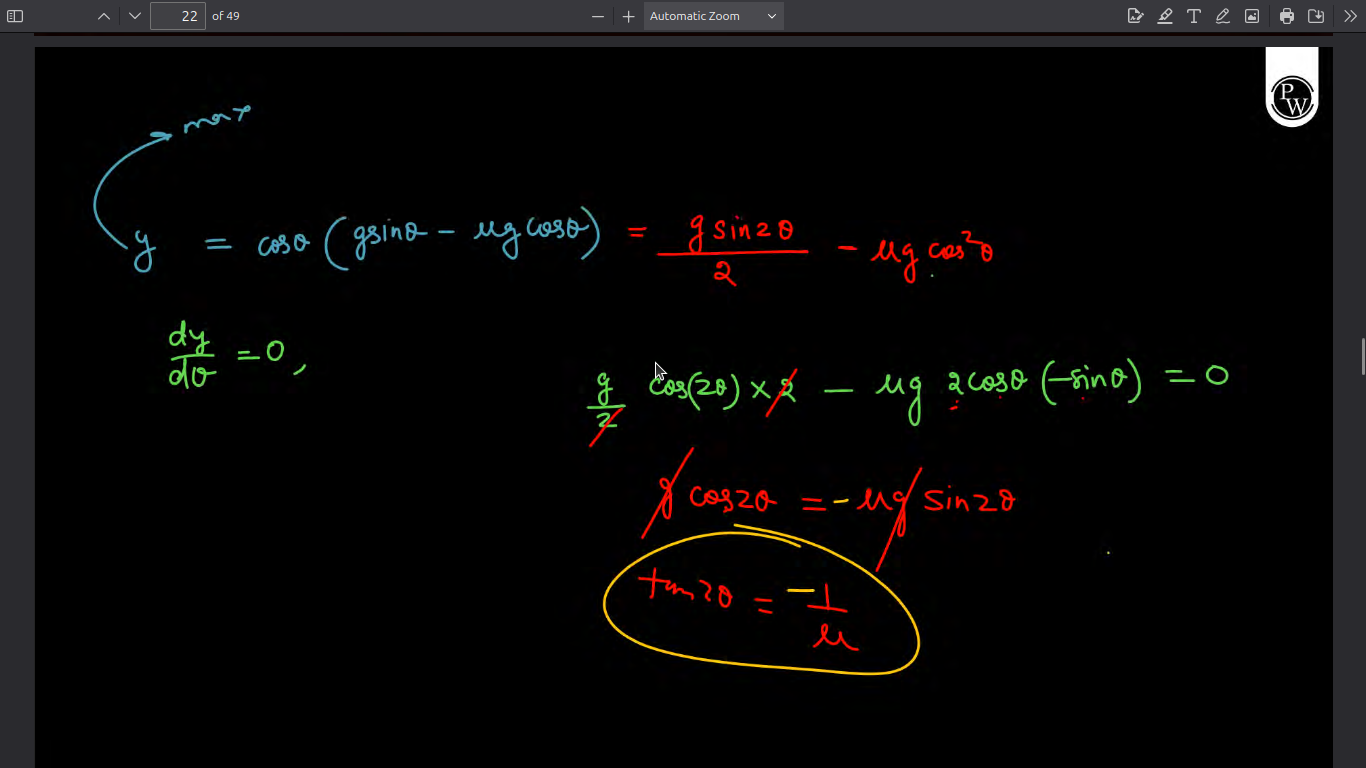 22 of 49 Automatic Zoom
PW
max
y = cosθ (gsinθ - μg cosθ) = g sin2θ / 2 - μg cos²θ
dy/dθ = 0,
g/2 cos(2θ) × 2 - μg 2cosθ (-sinθ) = 0
g cos2θ = - μg sin2θ
tan2θ = -1/μ